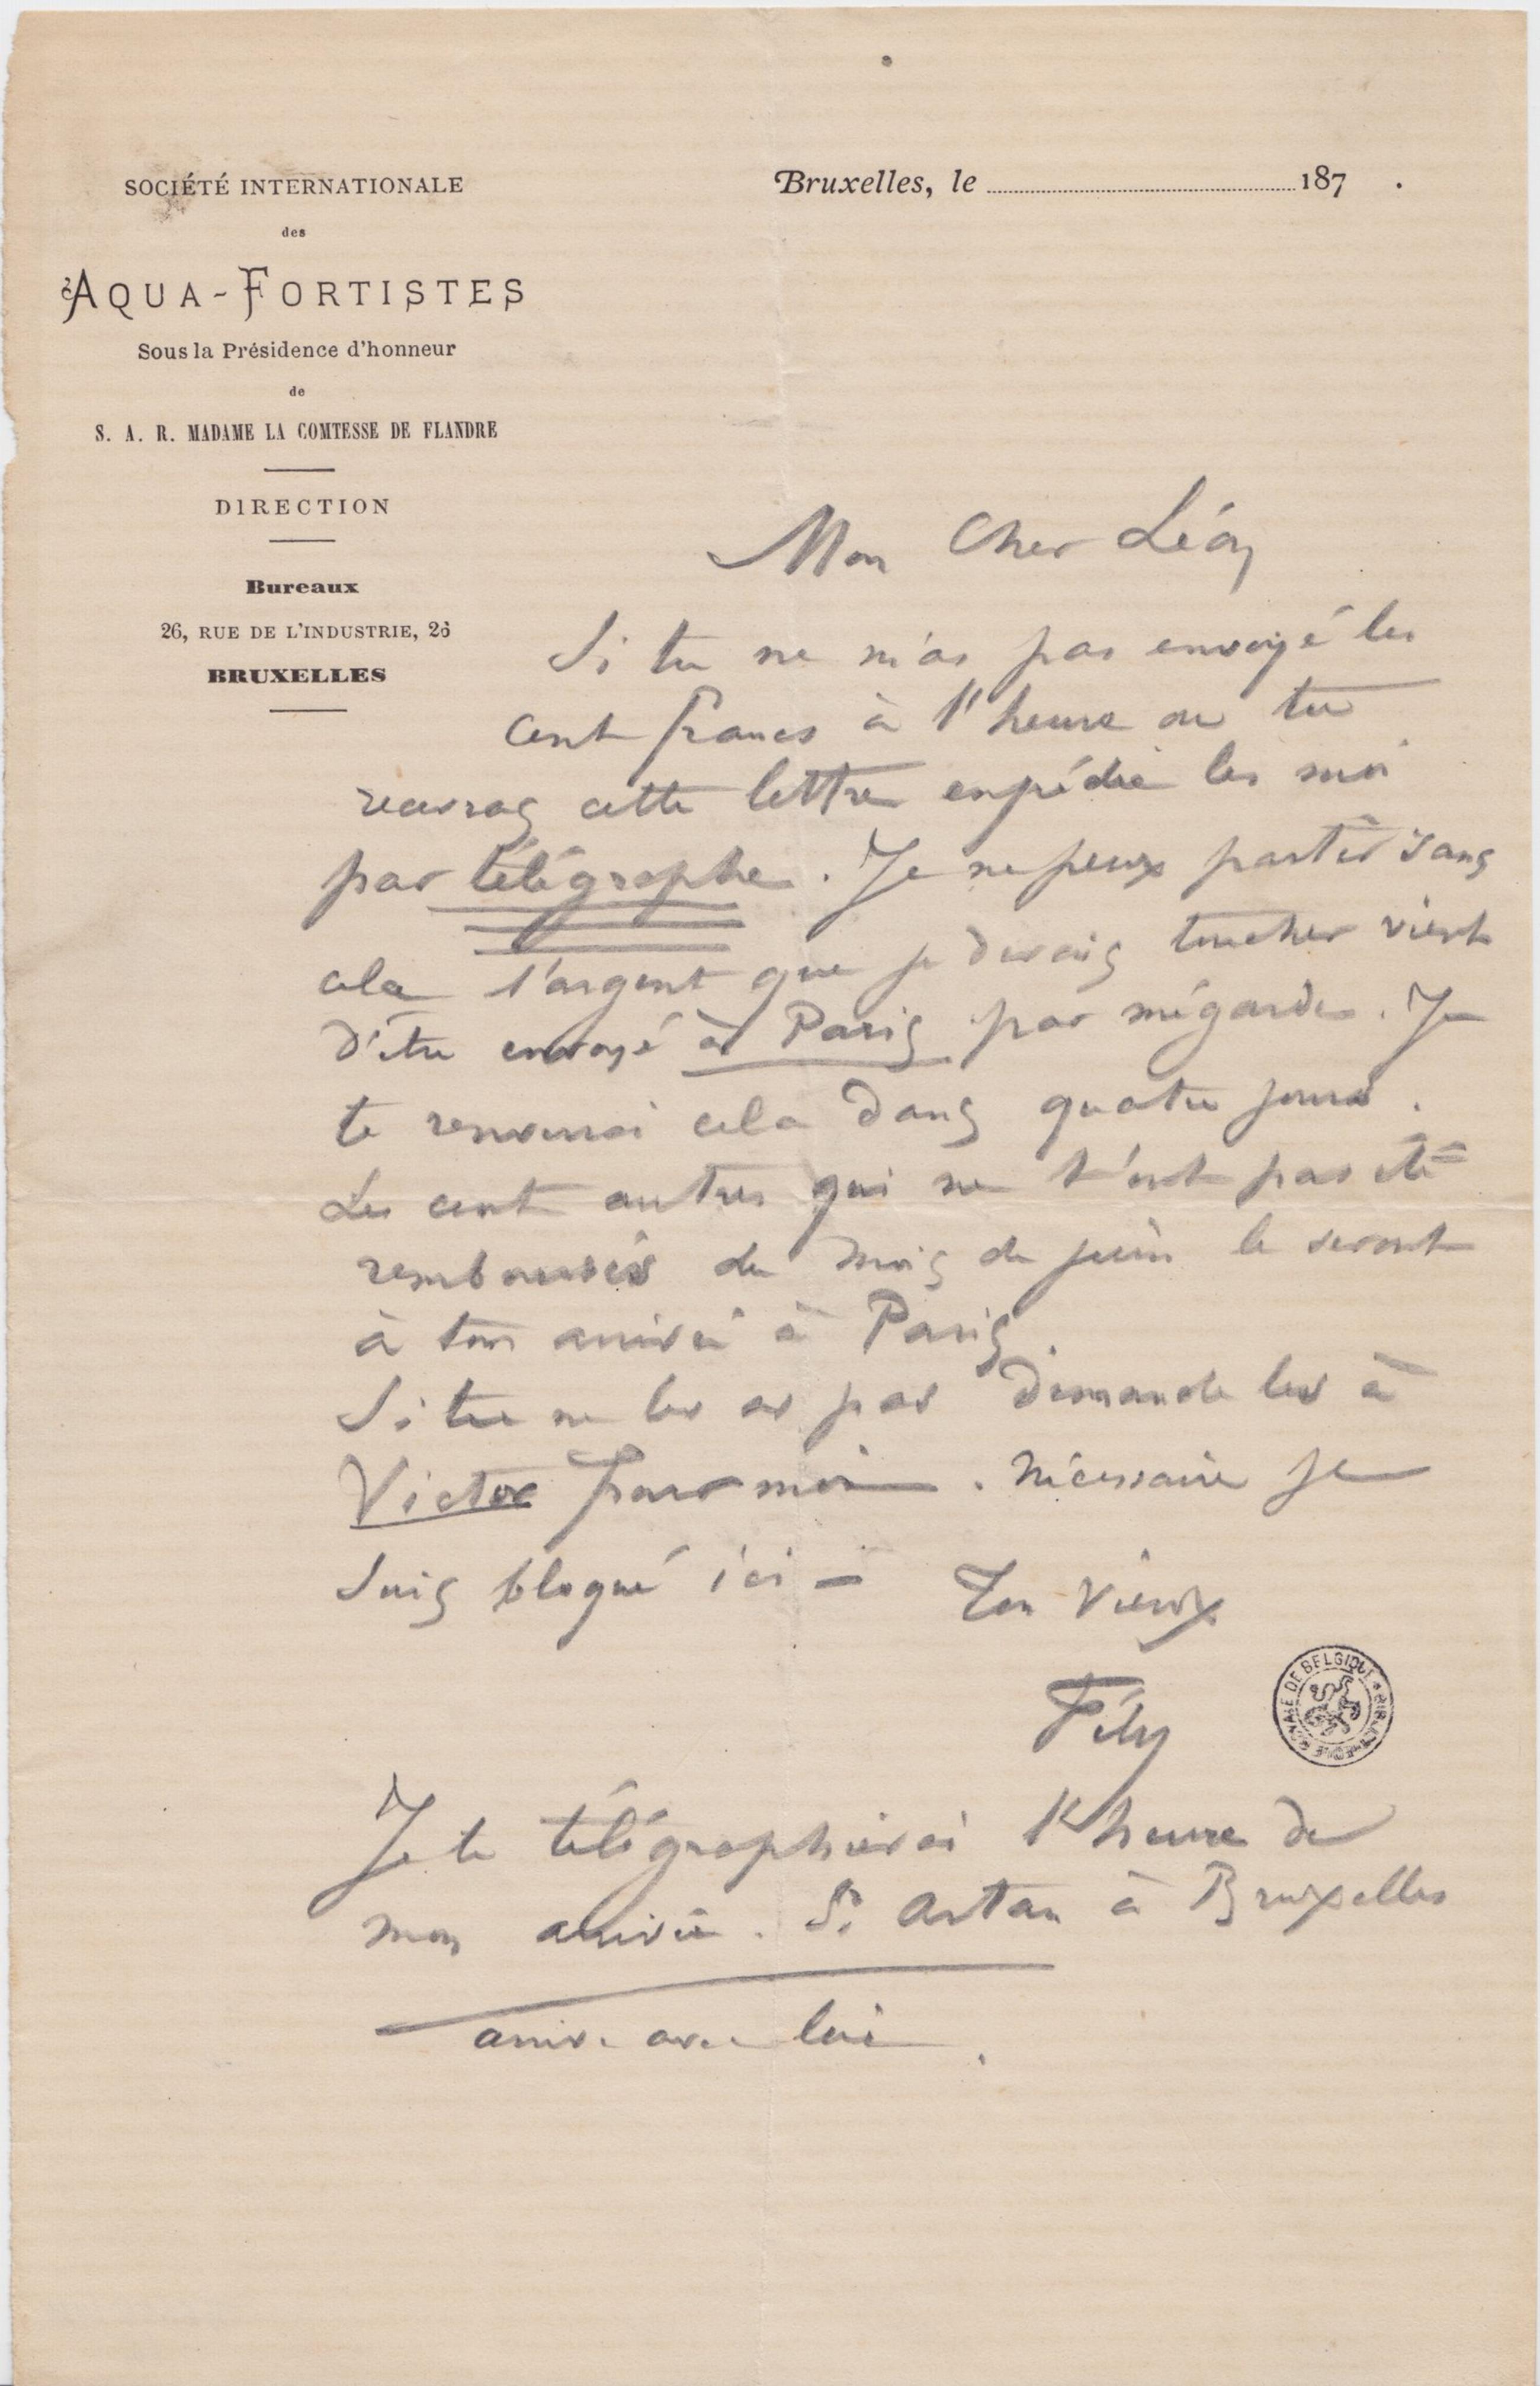 SOCIÉTÉ INTERNATIONALE
des
AQUA-FORTISTES
Sous la Présidence d'honneur
de
S. A. R. MADAME LA COMTESSE DE FLANDRE
DIRECTION
Bureaux
26, RUE DE L'INDUSTRIE, 26
BRUXELLES
Bruxelles, le 187 .
Mon Cher Léon
Si tu ne m'as pas envoyé les
cent francs à l'heure ou tu
recevras cette lettre expédie les moi
par télégraphe. Je ne peux partir sans
cela l'argent que je devais toucher vient
d'être envoyé à Paris par mégarde. Je
te renverrai cela dans quatre jours.
Les cent autres qui ne t'ont pas été
remboursés du mois de juin le seront
à ton arrivée à Paris.
Si tu ne les as pas demande les à
Victor pour moi. Nécessaire je
suis bloqué ici –
Ton Vieux
Fély
BIBLIOTHÈQUE ROYALE DE BELGIQUE
Je te télégraphierai l'heure de
mon arrivée. Si Artan à Bruxelles
arrive avec lui.